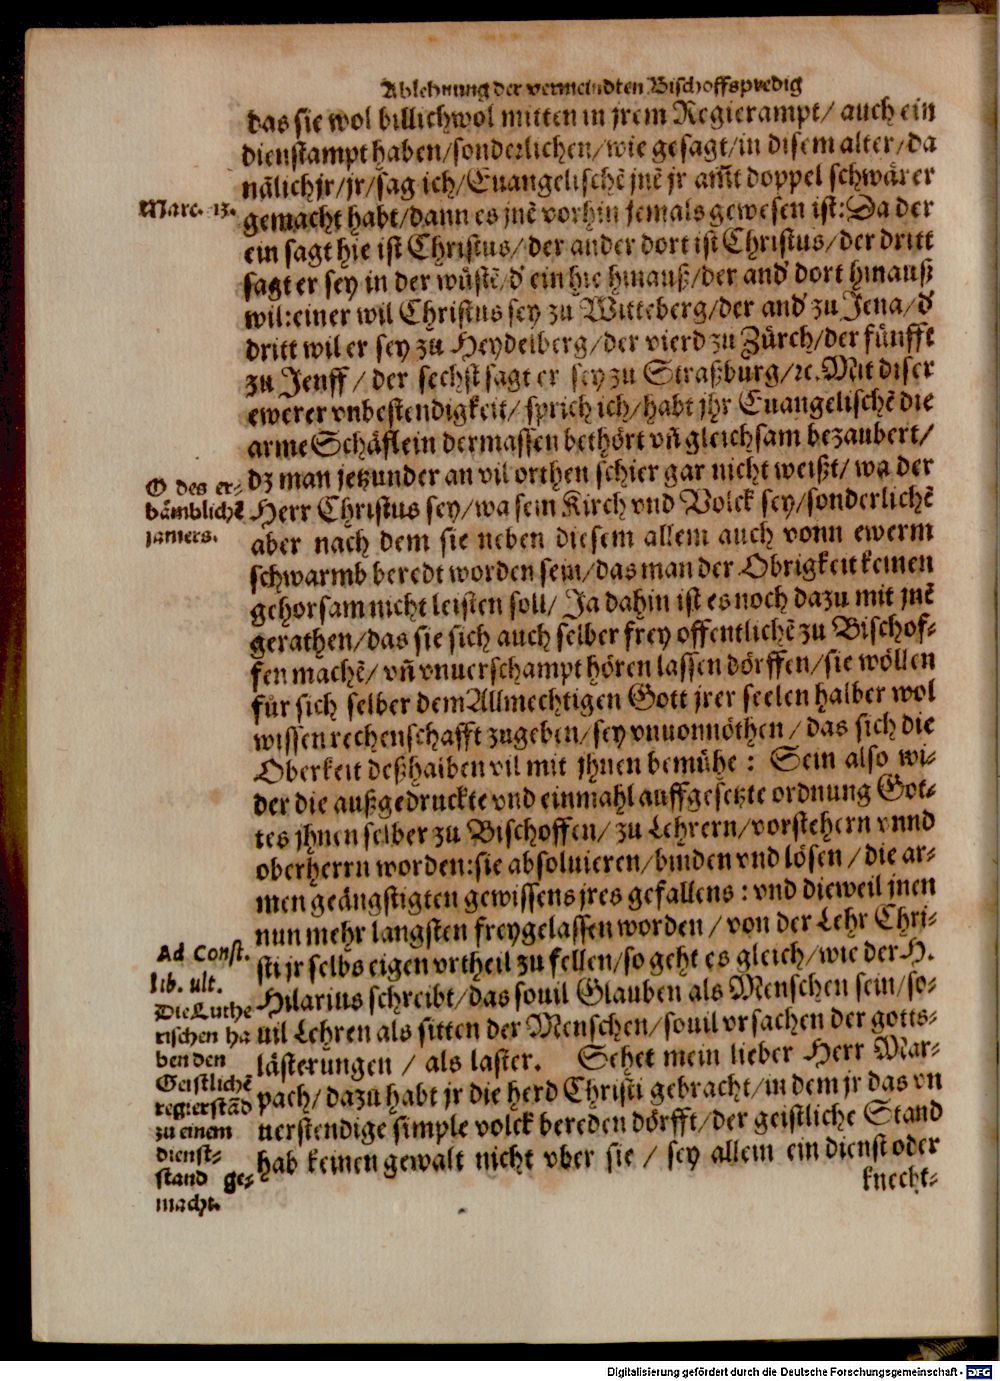 Ablehnung der vermeindten Bischoffspredig
das sie wol billich wol mitten in jrem Regierampt/ auch ein
dienstampt haben/ sonderlichen/ wie gesagt/ in disem alter/ da
nälich jr/ jr/ sag ich/ Euangelischē jnē jr am̄t doppel schwärer
Marc. 13.
gemacht habt/ dann es jnē vorhin jemals gewesen ist: Da der
ein sagt hie ist Christus/ der ander dort ist Christus/ der dritt
sagt er sey in der wüstē/ d' ein hie hinauß/ der and' dort hinauß
wil: einer wil Christus sey zu Witteberg/ der and' zu Jena/ d'
dritt wil er sey zu Heydelberg/ der vierd zu Zürch/ der fünfft
zu Jenff/ der sechst sagt er sey zu Straßburg/ ꝛc. Mit diser
ewerer vnbestendigkeit/ sprich ich/ habt jhr Euangelischē die
arme Schäflein dermassen bethört vn̄ gleichsam bezaubert/
dz man jetzunder an vil orthen schier gar nicht weißt/ wa der
O des er-
bämblichē
jamers.
Herr Christus sey/ wa sein Kirch vnd Volck sey/ sonderlichē
aber nach dem sie neben diesem allem auch vonn ewerm
schwarmb beredt worden sein/ das man der Obrigkeit keinen
gehorsam nicht leisten soll/ Ja dahin ist es noch dazu mit jnē
gerathen/ das sie sich auch selber frey offentlichē zu Bischof-
fen machē/ vn̄ vnuerschampt hören lassen dörffen/ sie wöllen
für sich selber dem Allmechtigen Gott jrer seelen halber wol
wissen rechenschafft zugeben/ sey vnuonnöthen/ das sich die
Oberkeit deßhalben vil mit jhnen bemühe: Sein also wi-
der die außgedruckte vnd einmahl auffgesetzte ordnung Got-
tes jhnen selber zu Bischoffen/ zu Lehrern/ vorstehern vnnd
oberherrn worden: sie absoluieren/ binden vnd lösen/ die ar-
men geängstigten gewissens jres gefallens: vnd dieweil jnen
nun mehr langsten freygelassen worden/ von der Lehr Chri-
sti jr selbs eigen vrtheil zu fellen/ so geht es gleich/ wie der H.
Ad Const.
lib. ult.
Hilarius schreibt/ das souil Glauben als Menschen sein/ so-
uil Lehren als sitten der Menschen/ souil vrsachen der gotts-
lästerungen/ als laster. Sehet mein lieber Herr Mar-
pach/ dazu habt jr die herd Christi gebracht/ in dem jr das vn
uerstendige simple volck bereden dörfft/ der geistliche Stand
hab keinen gewalt nicht vber sie/ sey allein ein dienst oder
Die Luthe
rischen ha
ben den
Geistlichē
regierstād
zu einem
dienst-
stand ge-
macht.
knecht-
Digitalisierung gefördert durch die Deutsche Forschungsgemeinschaft - DFG